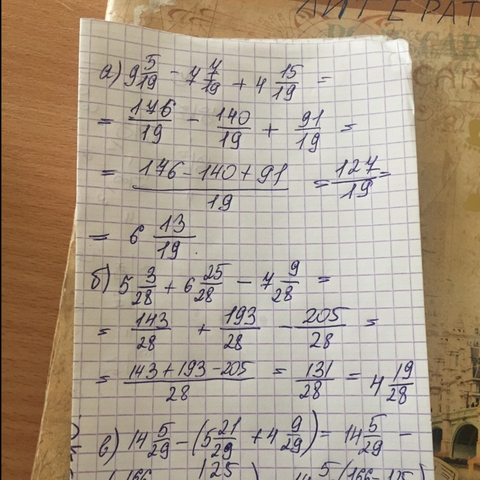 ЛИТЕРАТ
а) 9 5/19 - 7 7/19 + 4 15/19 =
= 176/19 - 140/19 + 91/19 =
= (176 - 140 + 91)/19 = 127/19 =
= 6 13/19.
б) 5 3/28 + 6 25/28 - 7 9/28 =
= 143/28 + 193/28 - 205/28 =
= (143 + 193 - 205)/28 = 131/28 = 4 19/28
в) 14 5/29 - (5 21/29 + 4 9/29) = 14 5/29 -